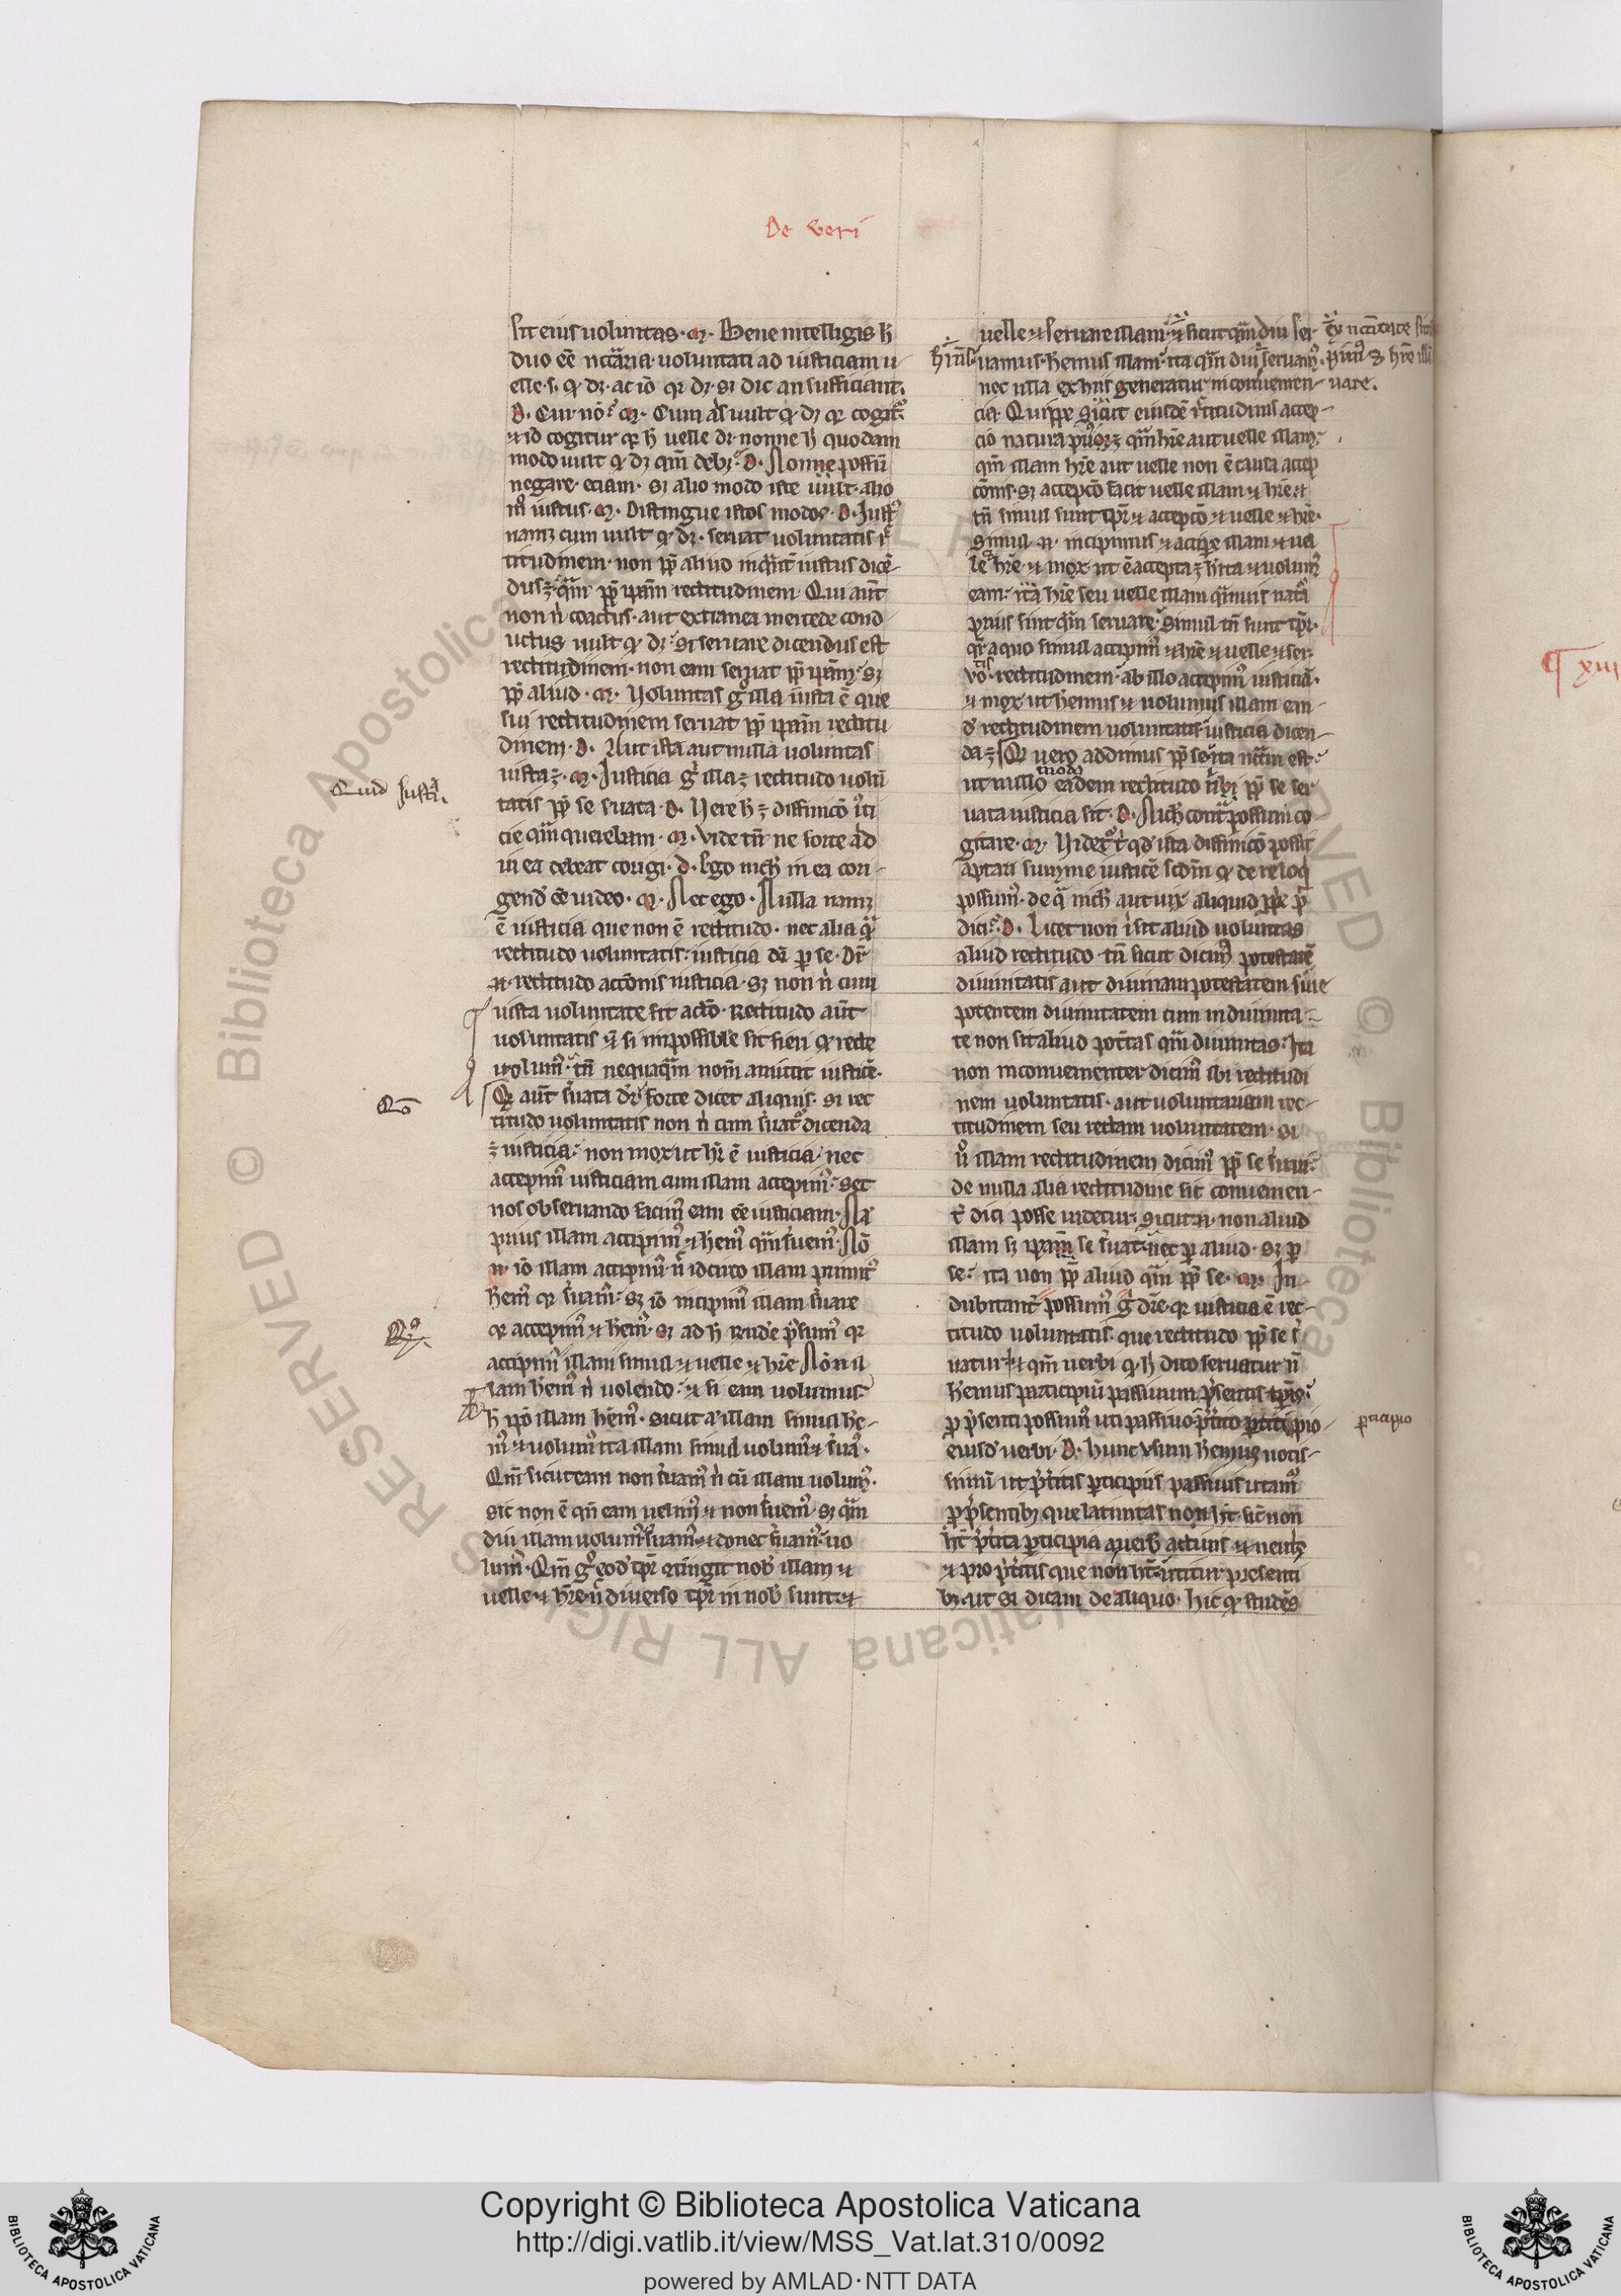 De veri
sit eius uoluntas. M. Bene intelligis h̄
duo eē nccāria uoluntati ad iusticiam u-
elle .s. qd̄ dꝫ. ac iō qꝛ dꝫ. sꝫ dic an sufficiant.
D. Cur nō? M. Cum al̓s uult qd̄ dꝫ qꝛ cogit᷑
⁊ id cogitur qꝛ h̄ uelle dꝫ. nonne h̄ quodam
modo uult qd̄ dꝫ qm̄ debꝫ? D. Nonne possū
negare. eciam. sꝫ alio modo iste uult. alio
mō iustus. M. Distingue istos modos. D. Justꝰ
namꝫ cum uult qd̄ dꝫ. seruat uoluntatis r̄
titudinem. non pp̄ aliud inqn̄tū iustus dicē-
dus ē. qm̄ pp̄ ipām rectitudinem. Qui aūt
non n̄ coactus. aut extranea mercede cond
uctus uult qd̄ dꝫ. si seruare dicendus est
rectitudinem. non eam seruat pp̄ ipām. sꝫ
pp̄ aliud. M. Uoluntas gͦ illa iusta ē que
sui rectitudinem seruat pp̄ ipām rectitu
dinem. D. Aut ista aut nulla uoluntas
iusta ē. M. Justicia gͦ illa ē rectitudo uolū
Quid iusti.
tatis pp̄ se s̄uata. D. Uere h̄ ē diffinicō iūti
cie qm̄ querebam. M. Vide tn̄ ne forte ad
in ea debeat corigi. D. Ego nich̄ in ea cori-
gend̄ eē uideo. M. Nec ego. Nulla namꝫ
ē iusticia que non ē rectitudo. nec alia qm̄
rectitudo uoluntatis: iusticia dr̄ p se. Dr̄
n̄. rectitudo accōnis iusticia. sꝫ non n̄ cum
iusta uoluntate fit actō. Rectitudo aūt
uoluntatis ⁊ si impossibile sit fieri qd̄ recte
uolumꝰ. tn̄ nequaqm̄ nom̄ amittit iusticē.
Qo
Qꝛ aūt s̄uata dr̄. forte dicet aliquis. si rec
titudo uoluntatis non n̄ cum s̄uat᷑ dicenda
ē iusticia: non mox ut hr̄ ē iusticia. nec
accepimꝰ iusticiam cum illam accepimꝰ: sed
nos obseruando facimꝰ eam eē iusticiam. Nā
prius illam accipimꝰ ⁊ hēmꝰ qm̄ s̄uemꝰ. Nō
n̄. iō illam accipimꝰ. n̄ idcirco illam primitꝰ
hēmꝰ qꝛ s̄uamꝰ: sꝫ iō incipimꝰ illam s̄uare
Rͦ
qꝛ accepimꝰ ⁊ hēmꝰ. Sꝫ ad h̄ rn̄dē p̄sumꝰ qꝛ
accipimꝰ illam simul ⁊ uelle ⁊ hr̄e. Nō n̄ il
lam hēmꝰ n̄ uolendo: ⁊ si eam uolumus
h̄ ip̄o illam hēmꝰ. Sicut aūt illam simul he-
mꝰ ⁊ uolumꝰ ita illam simul uolumꝰ ⁊ s̄uamꝰ.
Qm̄ sicut eam non s̄uamꝰ n̄ cū illam uolumꝰ.
sic non ē qn̄ eam uelimꝰ ⁊ non s̄uemꝰ. sꝫ qm̄
diu illam uolumꝰ. s̄uamꝰ. ⁊ donec s̄uamꝰ: uo
lumꝰ. Qm̄ gͦ eod̄ tpr̄ contingit nob̄ illam ⁊
uelle. ⁊ hr̄e. n̄ diuerso tpr̄ in nob̄ sunt. ⁊
uelle ⁊ seruare illam: ⁊ sicut qm̄diu ser-
uamus. hēmus illam. ita qm̄ diu seruamꝰ.
nec ulla ex hiis generatur inconuenien-
uare.
cia. Quippe sicut eiusdē r̄titudinis accep-
cio natura prior ē qm̄ hr̄e aut uelle illam:
qm̄ illam hr̄e aut uelle non ē causa accep
cōnis. sꝫ accepcō facit uelle illam ⁊ hr̄e. ⁊
tn̄ simul sunt tpr̄ ⁊ accepcō ⁊ uelle ⁊ hr̄e.
Simul n̄. incipimus ⁊ accipe illam ⁊ uel
le ⁊ hr̄e. ⁊ mox ut ē accepta ē hita ⁊ uolumꝰ
eam: ita hr̄e seu uelle illam qm̄uis natā
prius sint qm̄ seruare: simul tn̄ sunt tpr̄.
qr̄ a quo simul accipimꝰ ⁊ hr̄e ⁊ uelle ⁊ ser-
uo. rectitudinem. ab illo accipimꝰ iusticiā.
⁊ mox ut hēmus ⁊ uolumus illam ean-
d̄ rectitudinem uoluntatis: iusticia dicen-
da ē. Qd̄ uero addimus pp̄ se. ita nccm̄ est:
ut nullo modo eadem rectitudo n̄ pp̄ se ser
uata iusticia sit. D. Nich̄ cont̄ possum co
gitare. M. Uidet᷑ t̄ qd̄ ista diffinicō possit
aptari summe iusticē scd̄m qd̄ de re loq̄
possumꝰ. de q̄ nich̄ aut uix aliquid ppe p̄
dici? D. Licet non ī sit aliud uoluntas
aliud rectitudo. tn̄ sicut dicimꝰ potestatē
diuinitatis aut diuinam potestatem siue
potentem diuinitatem cum in diuinita-
te non sit aliud potestas qm̄ diuinitas: Ita
non inconuenienter dicimꝰ ibi rectitudi
nem uoluntatis. aut uoluntariam rec-
titudinem seu rectam uoluntatem. Si
ū illam rectitudinem dicimꝰ pp̄ se s̄uari:
de nulla alia rectitudine sic conuenien-
t̄ dici posse uidetur. Sicut n̄. non aliud
illam sꝫ ipām se s̄uat: nec p aliud. sꝫ p
se: ita non pp̄ aliud qm̄ pp̄ se. M. In-
dubitant̄ possumꝰ gͦ dr̄e. qꝛ iusticia ē rec-
titudo uoluntatis. que rectitudo pp̄ se s̄
uatur. ⁊ qm̄ uerbi qd̄ h̄ dico seruatur n̄
hēmus participiū passiuum p̄sentis tpr̄is:
p p̄senti possumꝰ uti passiuo p̄t̄ito pticipio
pticipio
eiusd̄ uerbi. D. Hunc usum hēmus notis-
simū ut p̄t̄itis pticipiis passiuis utamꝰ
p p̄sentibꝫ que latinitas non ht̄. sic non
ht̄ p̄t̄ita pticipia a uerb̄ actiuis ⁊ neut̄s
⁊ pro p̄t̄itis que non ht̄. utitur presenti
bꝫ. ut si dicam de aliquo. hic qd̄ studēs
¶ xiii
Copyright © Biblioteca Apostolica Vaticana
http://digi.vatlib.it/view/MSS_Vat.lat.310/0092
powered by AMLAD·NTT DATA
BIBLIOTECA APOSTOLICA VATICANA
BIBLIOTECA APOSTOLICA VATICANA
© Biblioteca Apostolica Vaticana ALL RIGHTS RESERVED